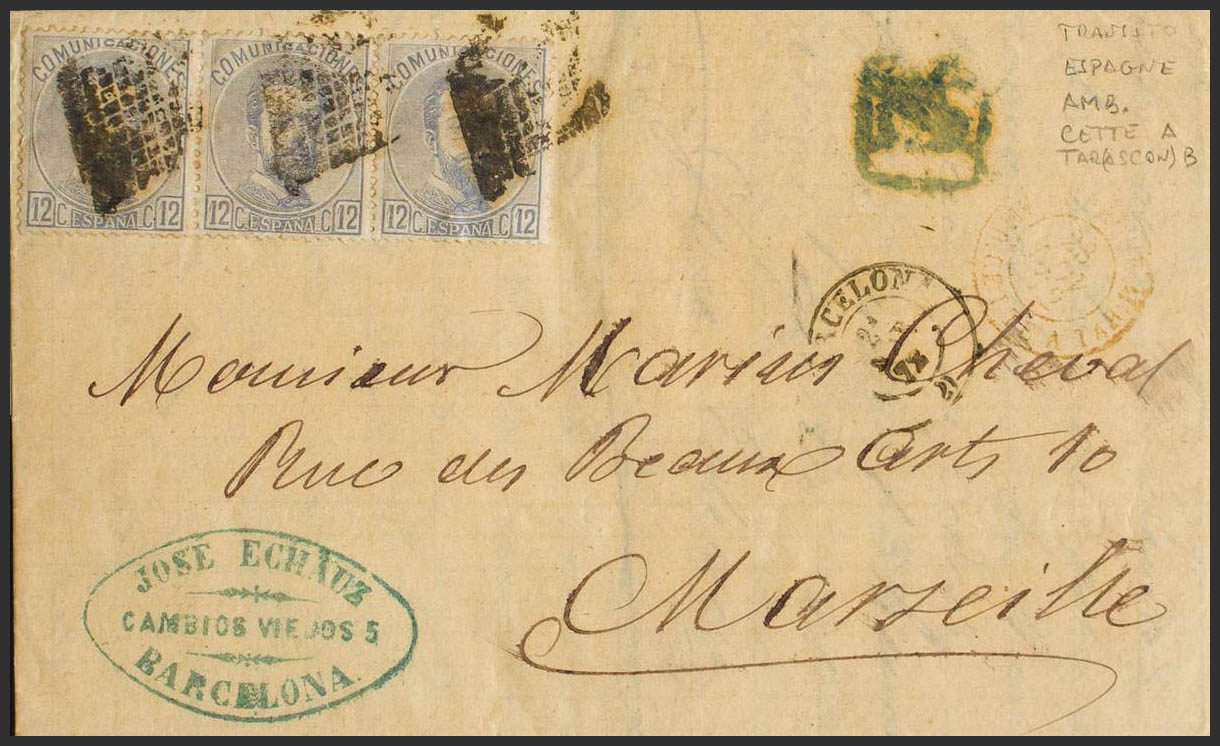 COMUNICACIONES COMUNICACIONES COMUNICACIONES
12 C. ESPAÑA C. 12 12 C. ESPAÑA C. 12 12 C. ESPAÑA C. 12
TRANSITO
ESPAGNE
AMB.
CETTE A
TAR(ASCON) B
A TAR
RCELONA
Monsieur Marius Cheval
Rue des Beaux Arts 10
Marseille
JOSE ECHAUZ
CAMBIOS VIEJOS 5
BARCELONA.